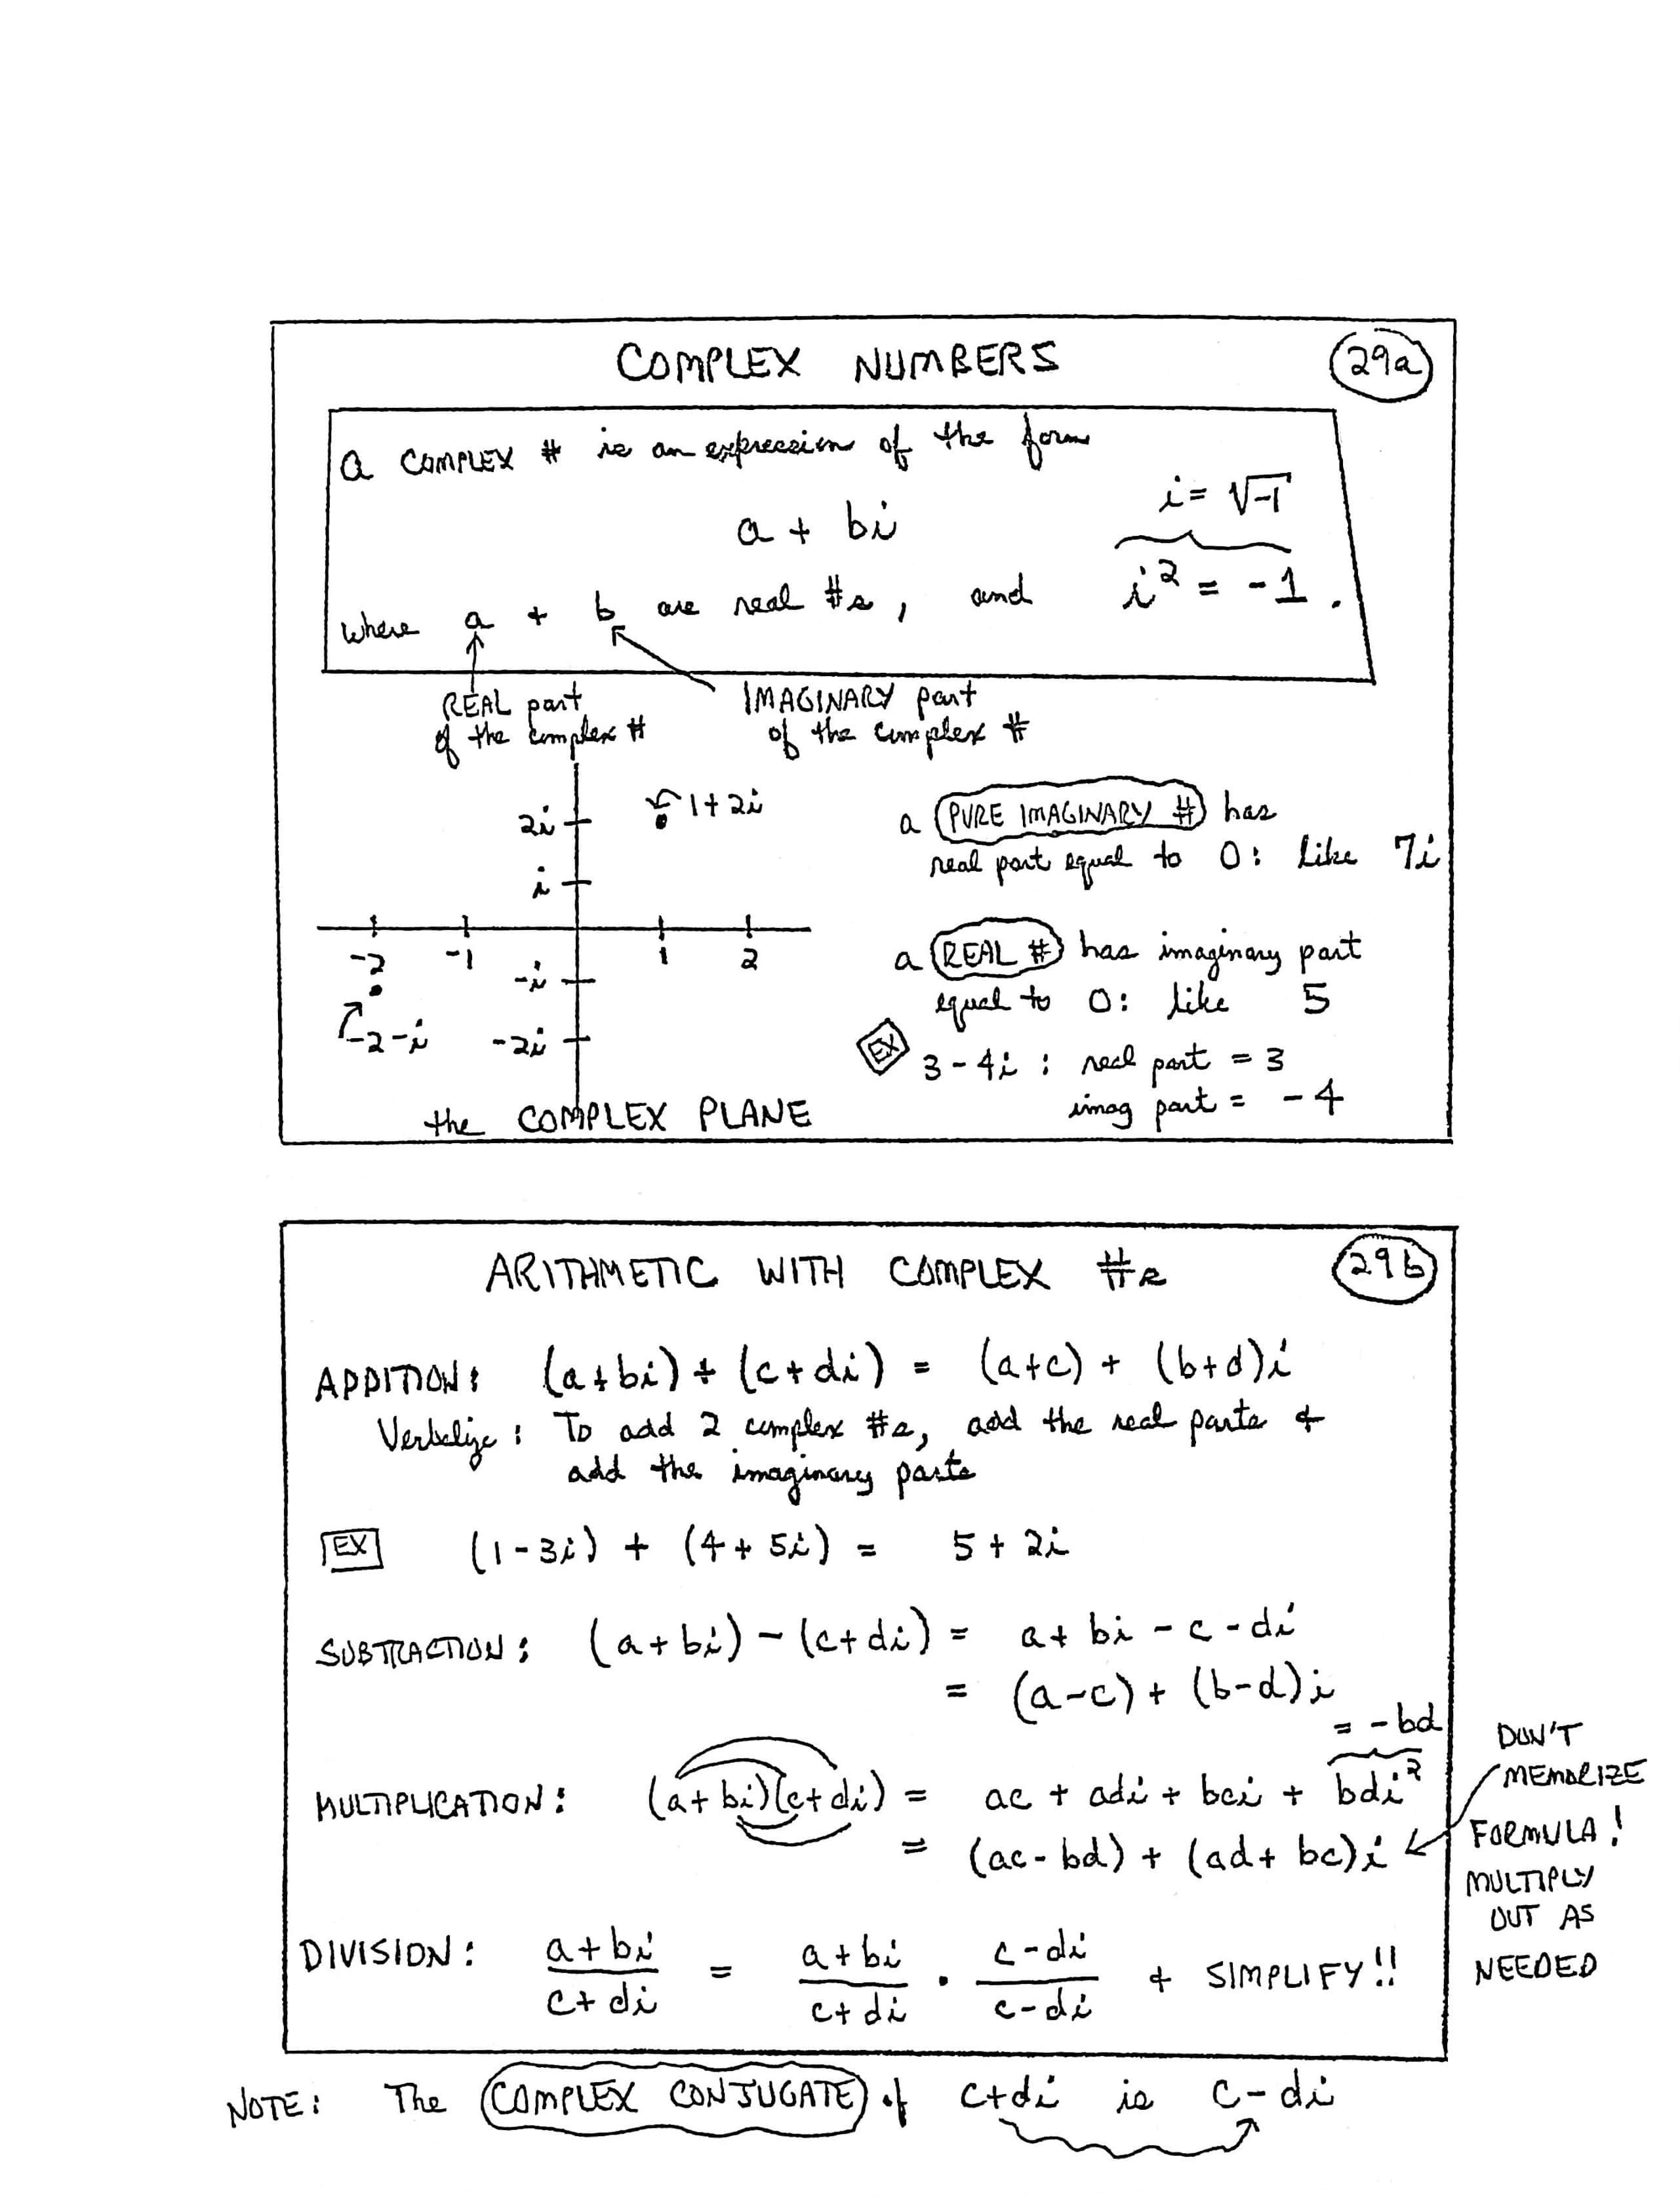 COMPLEX NUMBERS
29a
a COMPLEX # is an expression of the form
a + bi
i = √-1
where a + b are real #s, and i² = -1.
REAL part
of the complex #
IMAGINARY part
of the complex #
2i
1+2i
i
-2 -1 1 2
-i
-2-i
-2i
the COMPLEX PLANE
a PURE IMAGINARY # has
real part equal to 0: like 7i
a REAL # has imaginary part
equal to 0: like 5
EX 3-4i : real part = 3
imag part = -4
ARITHMETIC WITH COMPLEX #s
29b
ADDITION: (a+bi) + (c+di) = (a+c) + (b+d)i
Verbalize: To add 2 complex #s, add the real parts +
add the imaginary parts
EX (1-3i) + (4+5i) = 5+2i
SUBTRACTION: (a+bi) - (c+di) = a+bi-c-di
= (a-c) + (b-d)i
= -bd
MULTIPLICATION: (a+bi)(c+di) = ac + adi + bci + bdi²
= (ac-bd) + (ad+bc)i
DON'T
MEMORIZE
FORMULA!
MULTIPLY
OUT AS
NEEDED
DIVISION: a+bi/c+di = a+bi/c+di · c-di/c-di + SIMPLIFY!!
NOTE: The COMPLEX CONJUGATE of c+di is c-di